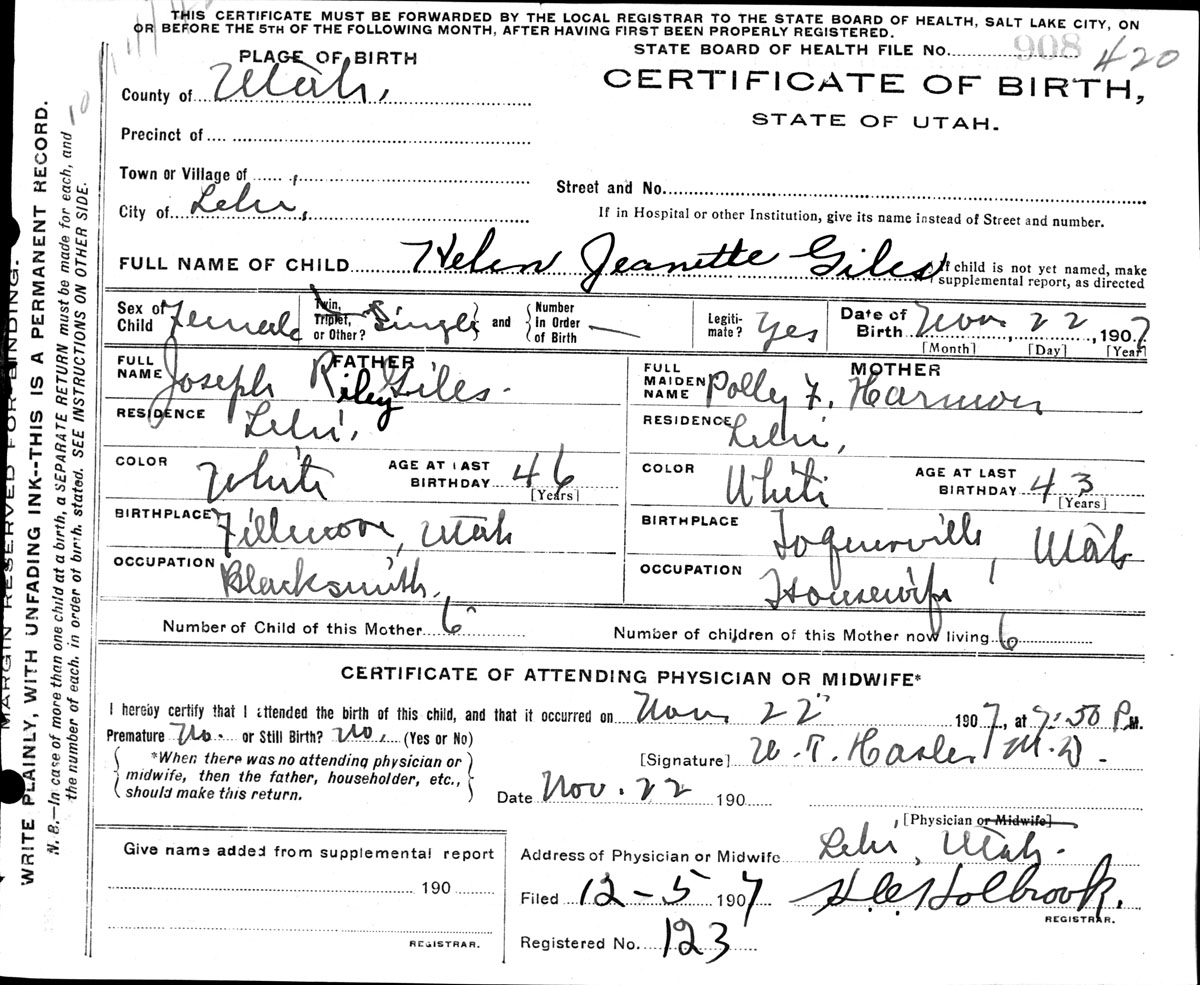 THIS CERTIFICATE MUST BE FORWARDED BY THE LOCAL REGISTRAR TO THE STATE BOARD OF HEALTH, SALT LAKE CITY, ON
OR BEFORE THE 5TH OF THE FOLLOWING MONTH, AFTER HAVING FIRST BEEN PROPERLY REGISTERED.
STATE BOARD OF HEALTH FILE No. 908 420
PLACE OF BIRTH
CERTIFICATE OF BIRTH,
STATE OF UTAH.
County of Utah,
Precinct of
Town or Village of
Street and No.
City of Lehi,
If in Hospital or other Institution, give its name instead of Street and number.
FULL NAME OF CHILD Helen Jeanette Giles
If child is not yet named, make supplemental report, as directed
Sex of Child Female
Twin, Triplet, or Other? Single and
Number in Order of Birth —
Legitimate? Yes
Date of Birth Nov. 22, 1907
[Month] [Day] [Year]
FATHER
FULL NAME Joseph Riley Giles.
RESIDENCE Lehi,
COLOR White
AGE AT LAST BIRTHDAY 46 [Years]
BIRTHPLACE Fillmore, Utah
OCCUPATION Blacksmith.
MOTHER
FULL MAIDEN NAME Polly F. Harmon
RESIDENCE Lehi,
COLOR White
AGE AT LAST BIRTHDAY 43 [Years]
BIRTHPLACE Toquerville, Utah
OCCUPATION Housewife
Number of Child of this Mother 6
Number of children of this Mother now living 6
CERTIFICATE OF ATTENDING PHYSICIAN OR MIDWIFE*
I hereby certify that I attended the birth of this child, and that it occurred on Nov. 22 1907, at 7:50 P.M.
Premature No. or Still Birth? No. (Yes or No)
*When there was no attending physician or midwife, then the father, householder, etc., should make this return.
[Signature] W. T. Hasler M.D.
Date Nov. 22 190
[Physician or Midwife]
Give name added from supplemental report
190
REGISTRAR.
Address of Physician or Midwife Lehi, Utah.
Filed 12-5 1907
H.C. Holbrook.
REGISTRAR.
Registered No. 123
MARGIN RESERVED FOR BINDING.
WRITE PLAINLY, WITH UNFADING INK--THIS IS A PERMANENT RECORD.
N. B.—In case of more than one child at a birth, a SEPARATE RETURN must be made for each, and
the number of each, in order of birth, stated. SEE INSTRUCTIONS ON OTHER SIDE.
10